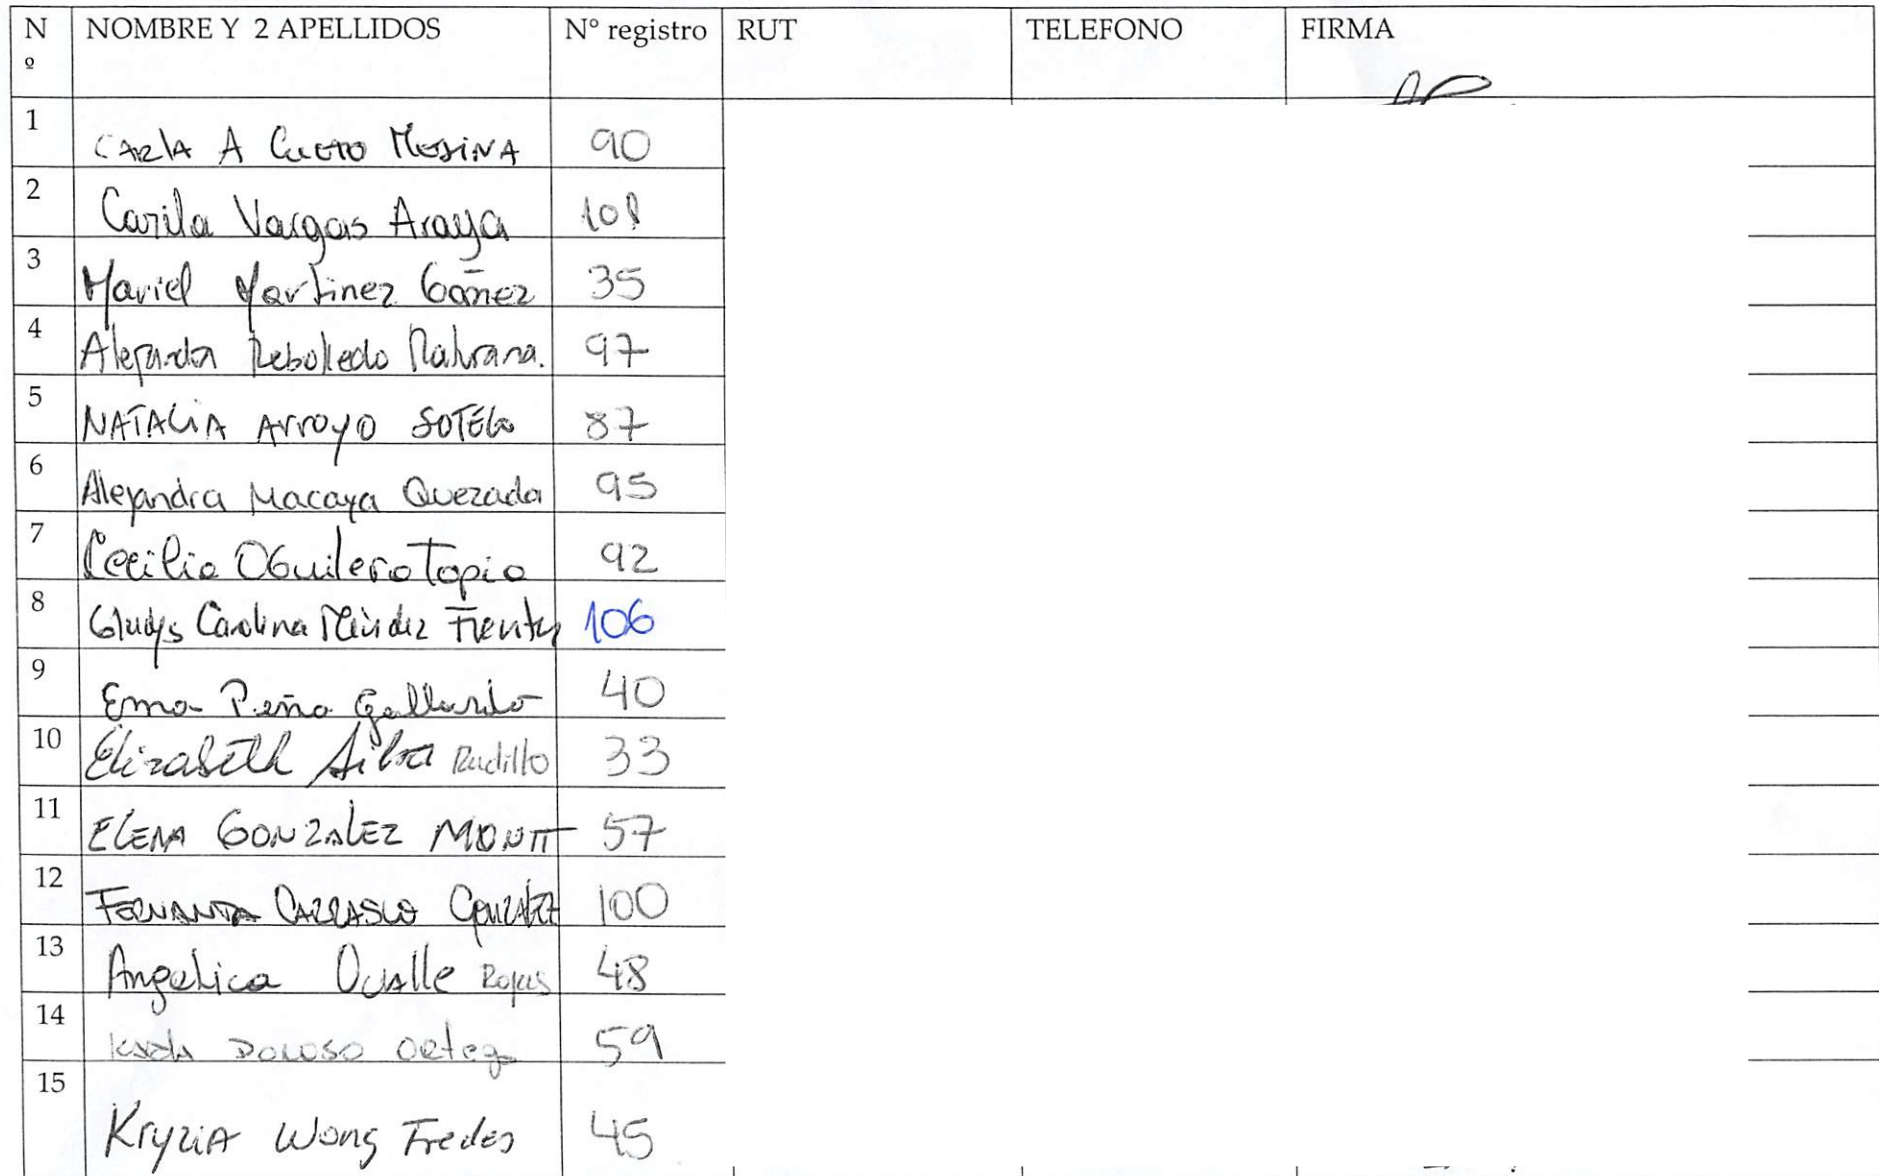 Nº NOMBRE Y 2 APELLIDOS Nº registro RUT TELEFONO FIRMA
1 CARLA A CUETO MESINA 90
2 Carila Vargas Araya 108
3 Mariel Martinez Gómez 35
4 Alejandra Rebolledo 97
5 NATALIA Arroyo SOTELO 87
6 Alejandra Macaya Quezada 95
7 Cecilia Aguilera Tapia 92
8 Gladys Carolina Méndez 106
9 Ema Peña Gallardo 40
10 Elizabeth Silva 33
11 ELENA GONZALEZ MONTT 57
12 FERNANDA CARRASCO GONZALEZ 100
13 Angelica Ovalle Rojas 48
14 DONOSO Ortega 59
15 Kryzia Wong Fredes 45